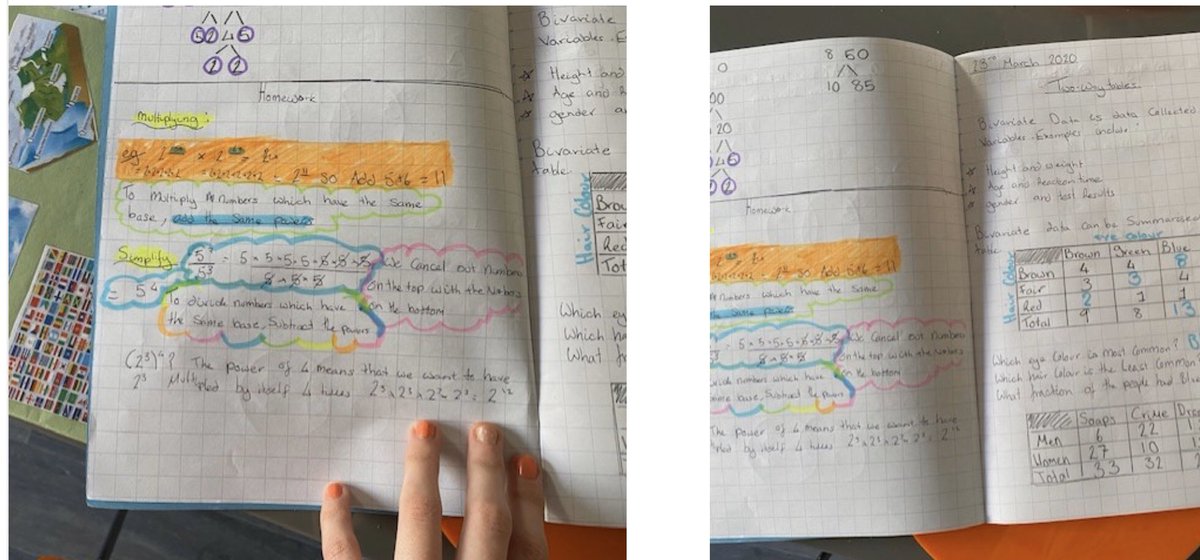 2 2 4 5
2 2
Homework
Multiplying:
eg 2 × 2 =
= 2 so Add 5+6 = 11
To Multiply Numbers which have the same
base, add the same powers
Simplify 5⁷ = 5 × 5 × 5 × 5 × 5 × 5 × 5
5³ 5 × 5 × 5
= 5⁴
We Cancel out Numbers
on the top with the Numbers
on the bottom
To divide numbers which have
the same base, Subtract the powers
(2³)⁴? The power of 4 means that we want to have
2³ Multiplied by itself 4 times 2³ × 2³ × 2³ × 2³ = 2¹²
Bivariate
Variables. E
Height and
Age and R
gender a
Bivariate
table.
Hair Colour
Brow
Fair
Red
Tot
Which ey
Which ha
What fr
0
00
20
8 50
10 85
Homework
so Add 5+6 = 11
Numbers which have the same
the same powers
5 × 5 × 5 × 5 × 5 × 5 × 5
5 × 5 × 5
We Cancel out Numbers
on the top with the Numbers
on the bottom
divide numbers which have
same base, Subtract the powers
The power of 4 means that we want to have
by itself 4 times 2³ × 2³ × 2³ × 2³ = 2¹²
23rd March 2020
Two-way tables.
Bivariate Data is data Collected
Variables. Examples include:
Height and weight
Age and Reaction time
gender and test Results
Bivariate data can be Summarised
table.
eye colour
Hair Colour
Brown Green Blue
Brown 4 4 8
Fair 3 3 4
Red 2 1 1
Total 9 8 13
Which eye Colour is most Common? B
Which hair Colour is the Least Common
What fraction of the people had Blue
Soaps Crime
Men 6 22
Women 27 10
Total 33 32